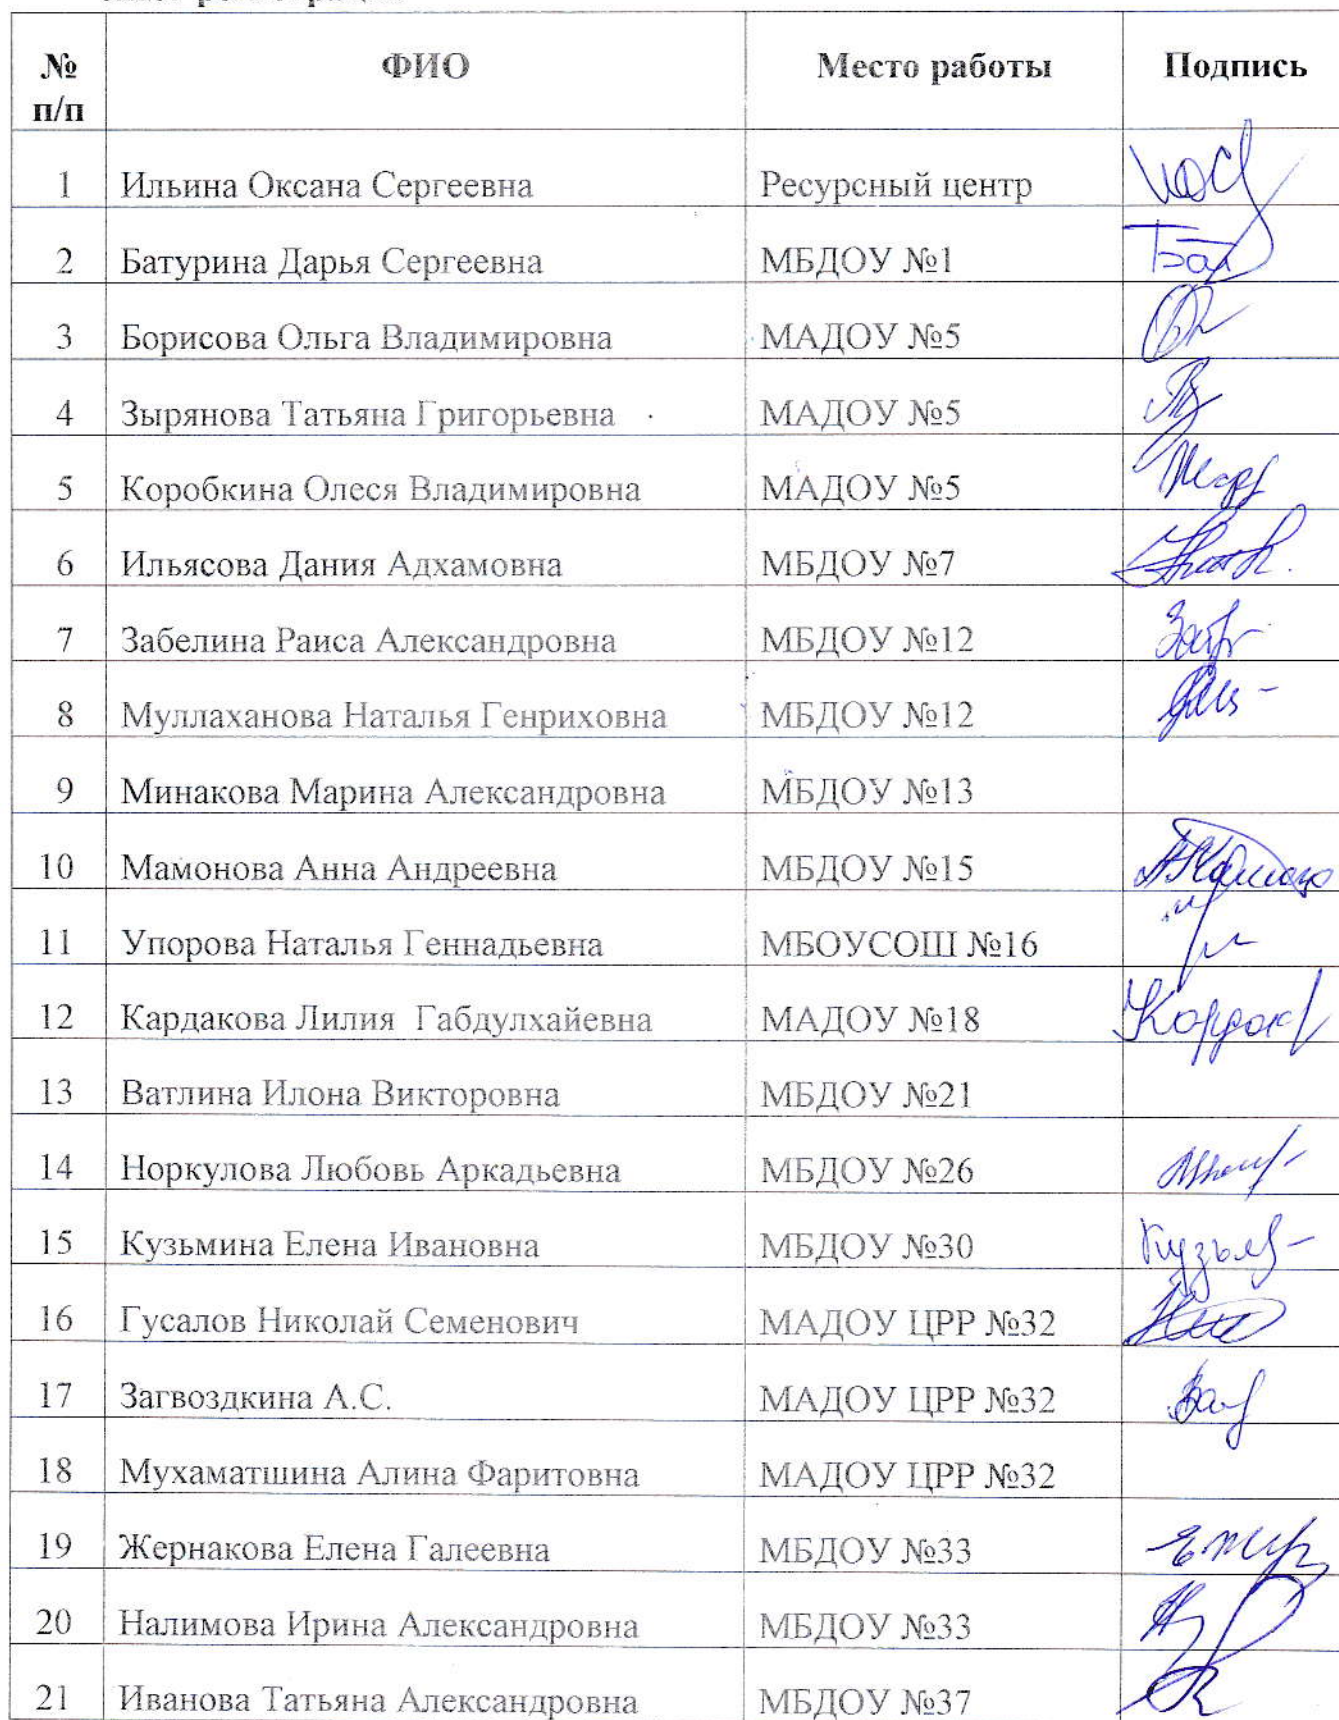 № ФИО Место работы Подпись
п/п
1 Ильина Оксана Сергеевна Ресурсный центр
2 Батурина Дарья Сергеевна МБДОУ №1 Бат
3 Борисова Ольга Владимировна МАДОУ №5
4 Зырянова Татьяна Григорьевна МАДОУ №5
5 Коробкина Олеся Владимировна МАДОУ №5
6 Ильясова Дания Адхамовна МБДОУ №7
7 Забелина Раиса Александровна МБДОУ №12
8 Муллаханова Наталья Генриховна МБДОУ №12
9 Минакова Марина Александровна МБДОУ №13
10 Мамонова Анна Андреевна МБДОУ №15
11 Упорова Наталья Геннадьевна МБОУСОШ №16
12 Кардакова Лилия Габдулхайевна МАДОУ №18
13 Ватлина Илона Викторовна МБДОУ №21
14 Норкулова Любовь Аркадьевна МБДОУ №26
15 Кузьмина Елена Ивановна МБДОУ №30
16 Гусалов Николай Семенович МАДОУ ЦРР №32
17 Загвоздкина А.С. МАДОУ ЦРР №32
18 Мухаматшина Алина Фаритовна МАДОУ ЦРР №32
19 Жернакова Елена Галеевна МБДОУ №33
20 Налимова Ирина Александровна МБДОУ №33
21 Иванова Татьяна Александровна МБДОУ №37